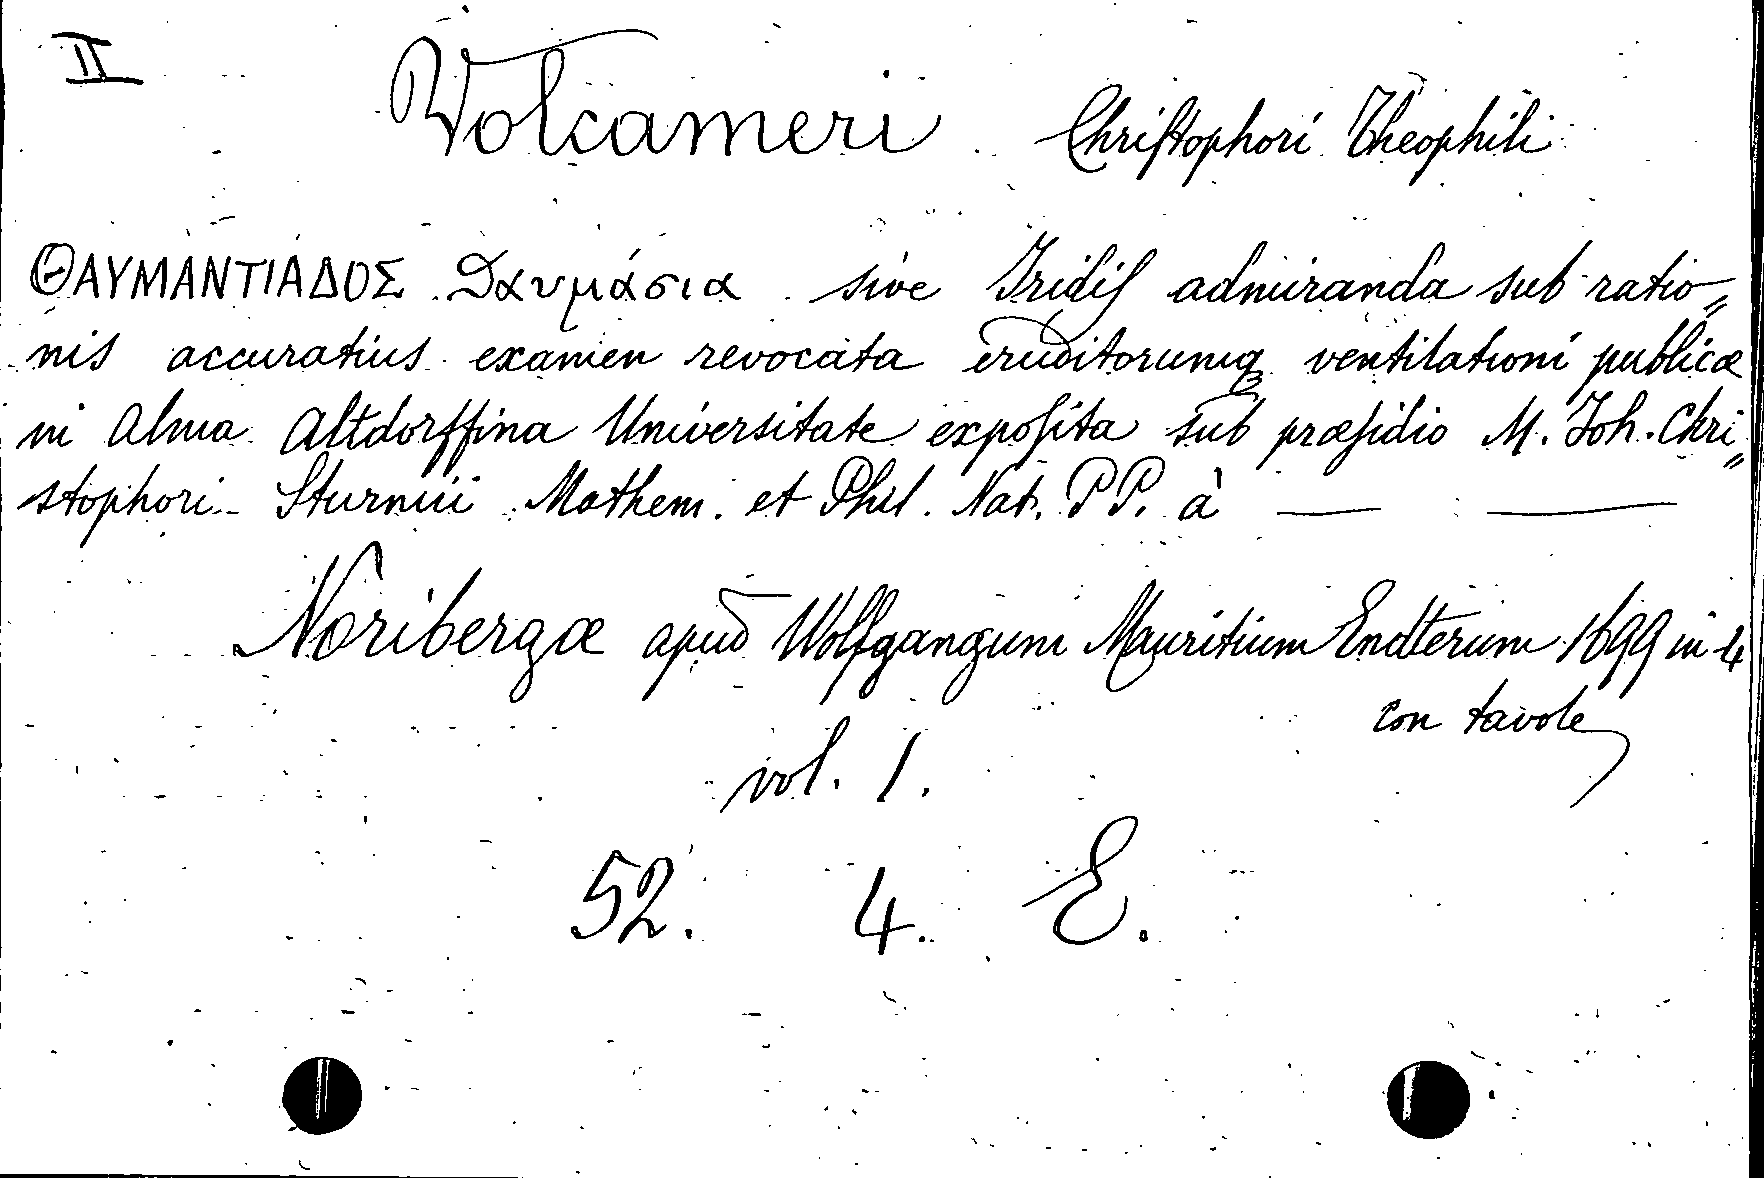 II
Volcameri Christophori Theophili
ΘΑΥΜΑΝΤΙΑΔΟΣ Θαυμάσια sive Iridis admiranda sub ratio„
nis accuratius examen revocata eruditorumq₃ ventilationi publicæ
in Alma Altdorffina Universitate exposita sub præsidio M. Joh. Chri„
stophori Sturmii Mathem. et Phil. Nat. P P. à — —
Noribergæ apud Wolfgangum Mauritium Endterum 1699 in 4
con tavole
vol. 1.
52. 4. E.